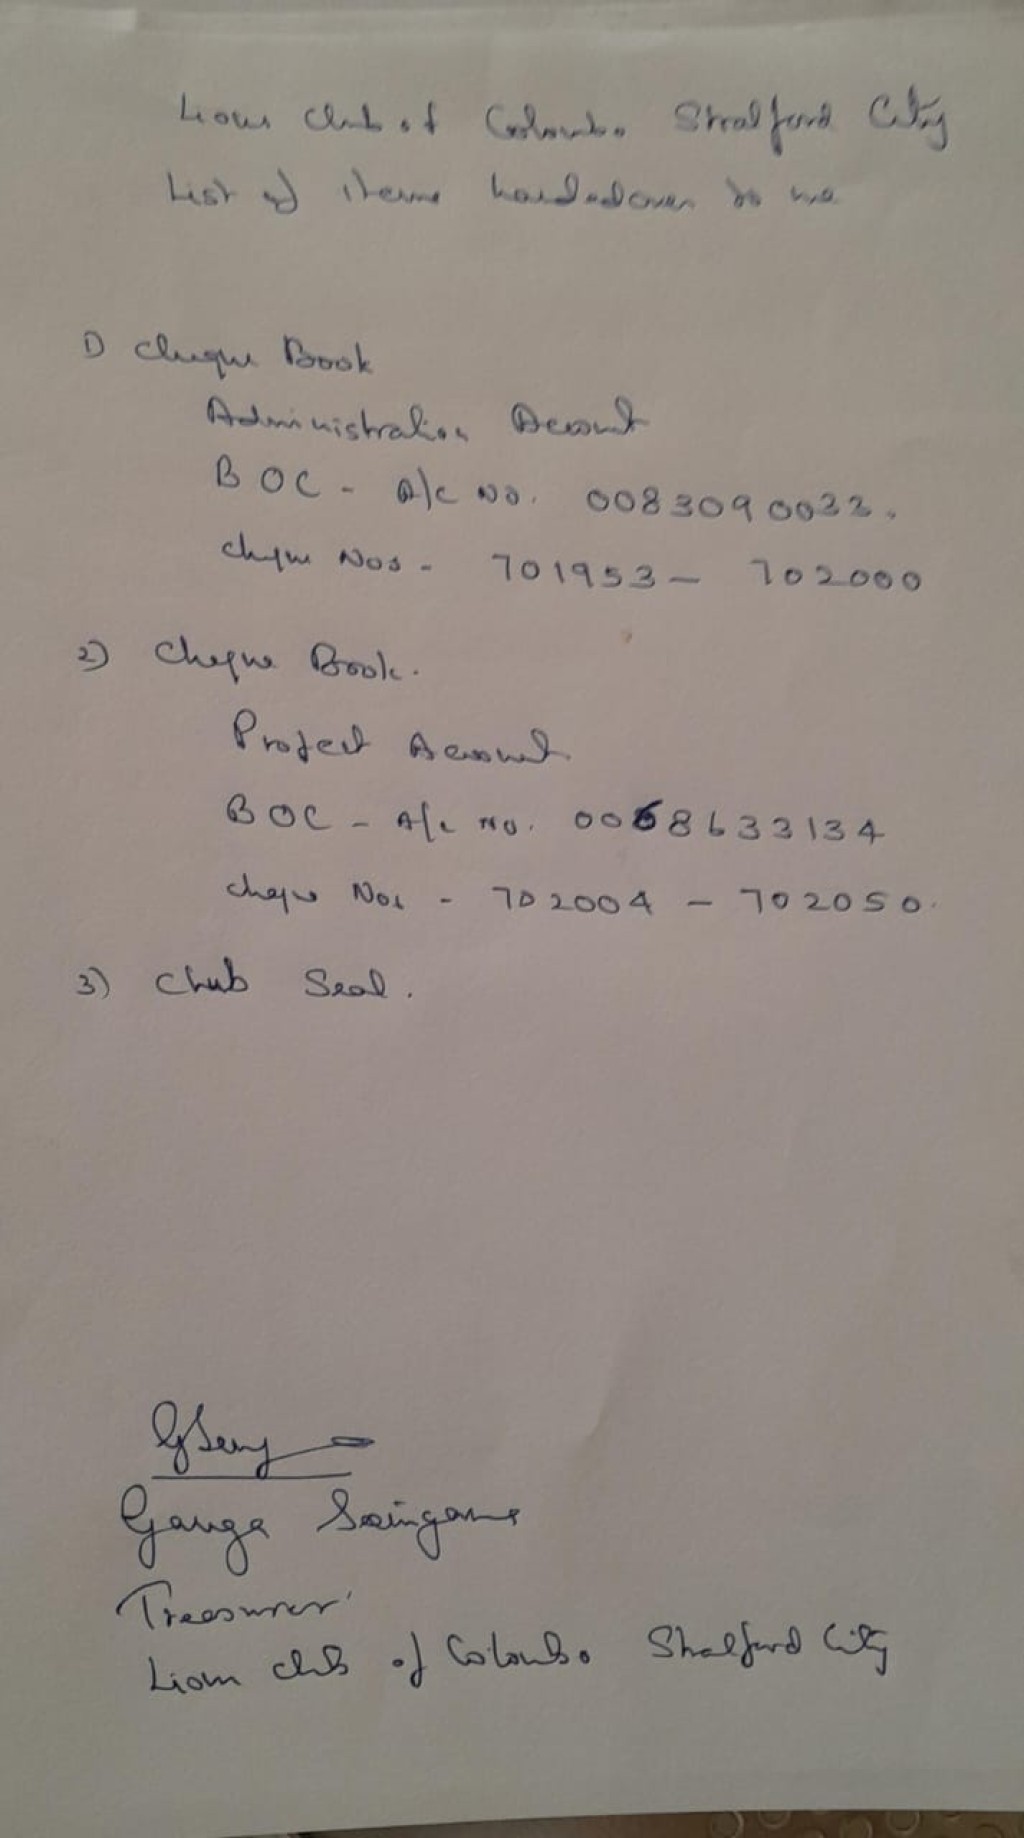 Lions Club of Colombo Stratford City
List of items handedover to me
1) Cheque Book
Administration Account
BOC - A/C No. 0083090033.
Cheque Nos - 701953 - 702000
2) Cheque Book.
Project Account
BOC - A/c No. 0068633134
Cheque Nos - 702004 - 702050.
3) Club Seal.
Ganga
Treasurer
Lions Club of Colombo Stratford City